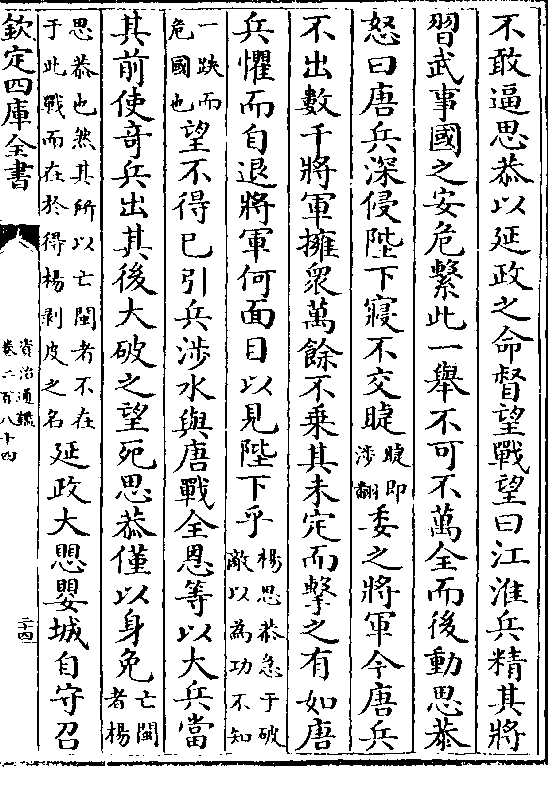 不敢逼思恭以延政之命督望戰望曰江淮兵精其將
習武事國之安危繫此一舉不可不萬全而後動思恭
怒曰唐兵深侵陛下寢不交睫睫即
涉翻委之將軍今唐兵
不出數千將軍擁衆萬餘不乗其未定而擊之有如唐
兵懼而自退將軍何面目以見陛下乎楊思恭急于破
敵以為功不知
一跌而
危國也望不得已引兵涉水與唐戰全恩等以大兵當
其前使竒兵出其後大破之望死思恭僅以身免亡閩
者楊
思恭也然其所以亡閩者不在
于此戰而在於得楊剥皮之名延政大思嬰城自守召
欽定四庫全書
資治通鑑
卷二百八十四
二十四